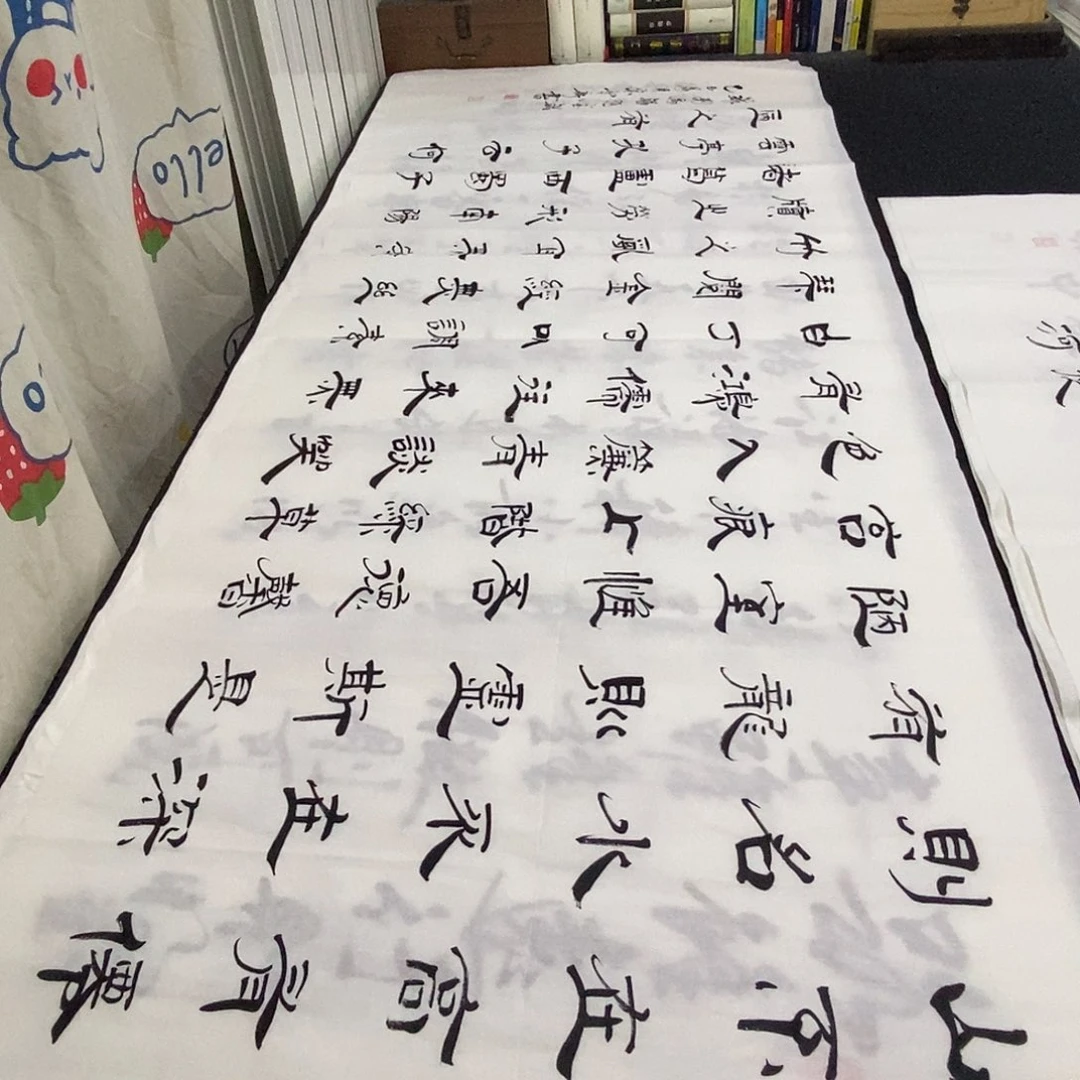 山不在高有僊
則名水不在深
有龍則靈斯是
陋室惟吾德馨
苔痕上階綠草
色入簾青談笑
有鴻儒往來無
白丁可㠯調素
琴閱金經無絲
竹之亂耳無案
牘之勞形南陽
諸葛廬西蜀子
雲亭孔子云何
陋之有
ello